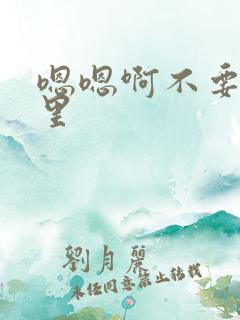 嗯嗯啊不要
里
劉月麗
未经同意禁止转载